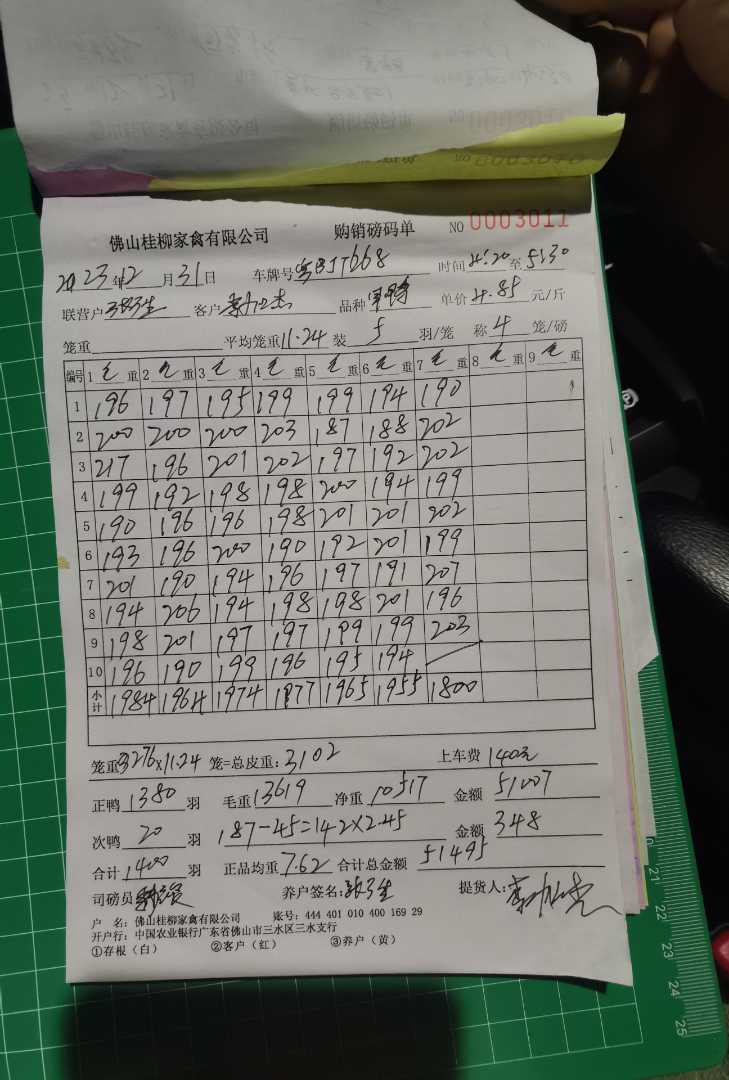 佛山桂柳家禽有限公司 购销磅码单 NO 0003011
2023年12月31日 车牌号 JT668 时间 4:20 至 5:30
联营户 客户 品种 单价 4.85 元/斤
笼重 平均笼重 11.24 装 5 羽/笼 称 4 笼/磅
编号 1 毛重 2 毛重 3 毛重 4 毛重 5 毛重 6 毛重 7 毛重 8 毛重 9 毛重
1 196 197 195 199 199 194 190
2 200 200 200 203 187 188 202
3 217 196 201 202 197 192 202
4 199 192 198 198 200 194 199
5 190 196 196 198 201 201 202
6 193 196 200 190 192 201 199
7 201 190 194 196 197 191 207
8 194 206 194 198 198 201 196
9 198 201 197 197 199 199 203
10 196 190 199 196 195 194
小计 1984 1964 1974 1977 1965 1955 1800
笼重 276×11.24 笼=总皮重: 3102 上车费 140元
正鸭 1380 羽 毛重 13619 净重 10517 金额 51007
次鸭 20 羽 187-45=142×2.45 金额 348
合计 1400 羽 正品均重 7.62 合计总金额 51495
司磅员 养户签名: 提货人:
户 名: 佛山桂柳家禽有限公司 账号: 444 401 010 400 169 29
开户行: 中国农业银行广东省佛山市三水区三水支行
①存根（白） ②客户（红） ③养户（黄）